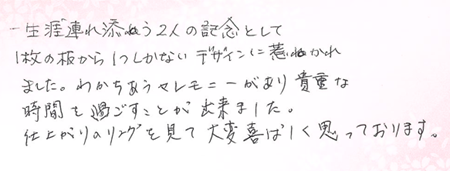 一生涯連れ添う2人の記念として
1枚の板から1つしかないデザインに惹かれ
ました。わかちあうセレモニーがあり貴重な
時間を過ごすことが出来ました。
仕上がりのリングを見て大変喜ばしく思っております。